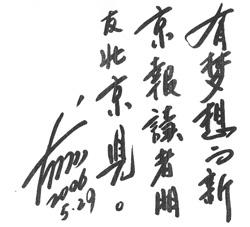 有梦想的新
京報讀者朋
友北京見。
2006
5.29